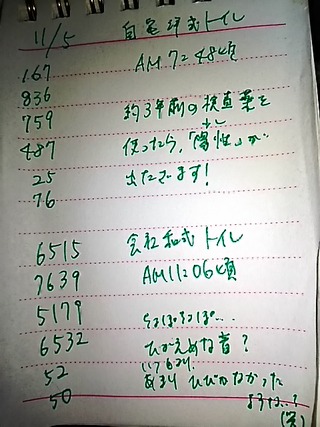 11/5 自宅 洋式トイレ
167 AM 7:48頃
836
759 約3年前の検査薬を
487 使ったら、「陽性」が
25 出たでます!
76
6515 会社 和式トイレ
7639 AM11:06頃
5179 ちょぽちょぽ…
6532 ひかえめな音?
52 あまり ひびかなかった
50 ような…?
(笑)